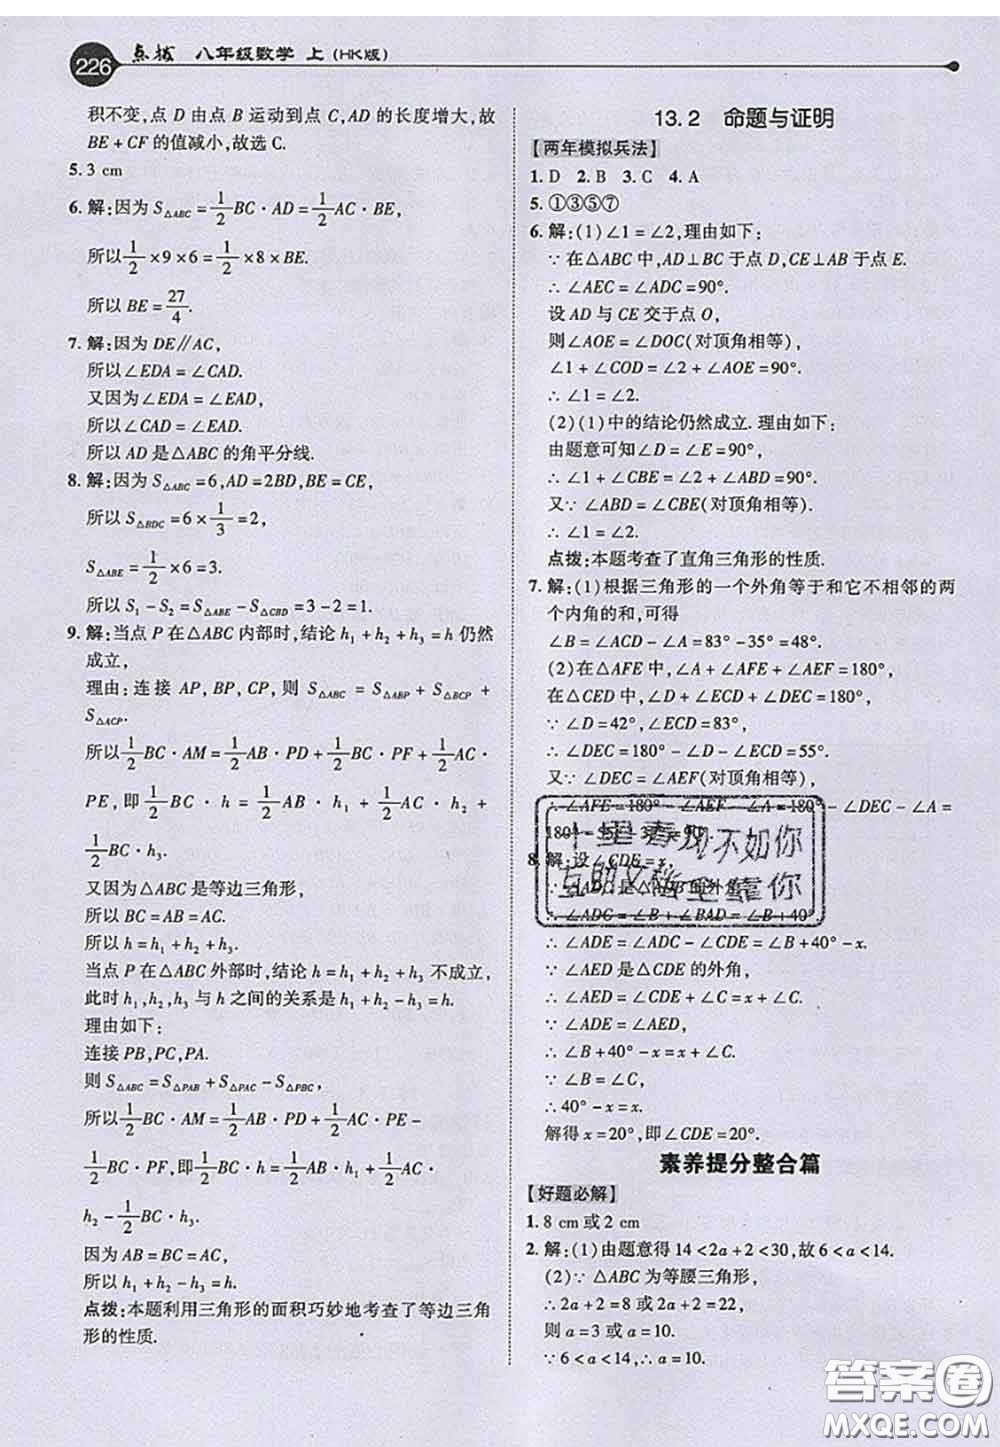 226 点拨 八年级数学 上(HK版)
积不变,点 D 由点 B 运动到点 C,AD 的长度增大,故
BE + CF 的值减小,故选 C.
5. 3 cm
6. 解:因为 S△ABC = 1/2 BC · AD = 1/2 AC · BE,
所以 1/2 × 9 × 6 = 1/2 × 8 × BE.
所以 BE = 27/4.
7. 解:因为 DE∥AC,
所以∠EDA = ∠CAD.
又因为∠EDA = ∠EAD,
所以∠CAD = ∠EAD.
所以 AD 是△ABC 的角平分线.
8. 解:因为 S△ABC = 6,AD = 2BD,BE = CE,
所以 S△BDC = 6 × 1/3 = 2,
S△ABE = 1/2 × 6 = 3.
所以 S₁ - S₂ = S△ABE - S△CBD = 3 - 2 = 1.
9. 解:当点 P 在△ABC 内部时,结论 h₁ + h₂ + h₃ = h 仍然
成立,
理由:连接 AP,BP,CP,则 S△ABC = S△ABP + S△BCP +
S△ACP.
所以 1/2 BC · AM = 1/2 AB · PD + 1/2 BC · PF + 1/2 AC ·
PE,即 1/2 BC · h = 1/2 AB · h₁ + 1/2 AC · h₂ + 1/2
BC · h₃.
又因为△ABC 是等边三角形,
所以 BC = AB = AC.
所以 h = h₁ + h₂ + h₃.
当点 P 在△ABC 外部时,结论 h₁ + h₂ + h₃ = h 不成立,
此时 h₁,h₂,h₃ 与 h 之间的关系是 h₁ + h₂ - h₃ = h.
理由如下:
连接 PB,PC,PA.
则 S△ABC = S△PAB + S△PAC - S△PBC,
所以 1/2 BC · AM = 1/2 AB · PD + 1/2 AC · PE -
1/2 BC · PF,即 1/2 BC · h = 1/2 AB · h₁ + 1/2 AC ·
h₂ - 1/2 BC · h₃.
因为 AB = BC = AC,
所以 h₁ + h₂ - h₃ = h.
点拨:本题利用三角形的面积巧妙地考查了等边三角
形的性质.
13.2 命题与证明
【两年模拟兵法】
1. D 2. B 3. C 4. A
5. ①③⑤⑦
6. 解:(1)∠1 = ∠2,理由如下:
∵ 在△ABC 中,AD⊥BC 于点 D,CE⊥AB 于点 E.
∴ ∠AEC = ∠ADC = 90°.
设 AD 与 CE 交于点 O,
则∠AOE = ∠DOC(对顶角相等),
∠1 + ∠COD = ∠2 + ∠AOE = 90°.
∴ ∠1 = ∠2.
(2)(1)中的结论仍然成立. 理由如下:
由题意可知∠D = ∠E = 90°,
∴ ∠1 + ∠CBE = ∠2 + ∠ABD = 90°.
又∵ ∠ABD = ∠CBE(对顶角相等),
∴ ∠1 = ∠2.
点拨:本题考查了直角三角形的性质.
7. 解:(1)根据三角形的一个外角等于和它不相邻的两
个内角的和,可得
∠B = ∠ACD - ∠A = 83° - 35° = 48°.
(2)在△AFE 中,∠A + ∠AFE + ∠AEF = 180°,
在△CED 中,∠D + ∠ECD + ∠DEC = 180°,
∵ ∠D = 42°,∠ECD = 83°,
∴ ∠DEC = 180° - ∠D - ∠ECD = 55°.
又∵ ∠DEC = ∠AEF(对顶角相等),
∴ ∠AFE = 180° - ∠AEF - ∠A = 180° - ∠DEC - ∠A =
180° - 55° - 35° = 90°.
8. 解:设∠CDE = x,
∵ ∠ADC 是△ABD 的外角,
∴ ∠ADC = ∠B + ∠BAD = ∠B + 40°.
∴ ∠ADE = ∠ADC - ∠CDE = ∠B + 40° - x.
∵ ∠AED 是△CDE 的外角,
∴ ∠AED = ∠CDE + ∠C = x + ∠C.
∵ ∠ADE = ∠AED,
∴ ∠B + 40° - x = x + ∠C.
∵ ∠B = ∠C,
∴ 40° - x = x.
解得 x = 20°,即∠CDE = 20°.
素养提分整合篇
【好题必解】
1. 8 cm 或 2 cm
2. 解:(1)由题意得 14 < 2a + 2 < 30,故 6 < a < 14.
(2)∵ △ABC 为等腰三角形,
∴ 2a + 2 = 8 或 2a + 2 = 22,
则 a = 3 或 a = 10.
∵ 6 < a < 14,∴ a = 10.
十里春风不如你
互助文档全靠你
答案圈
MXQE.COM